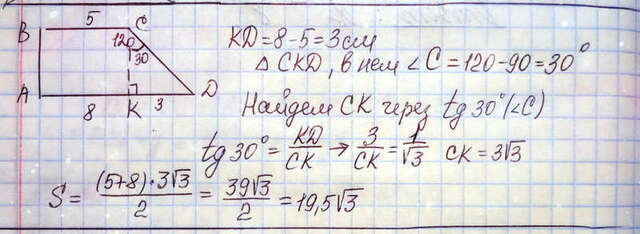 5
B C
120
30
A 8 K 3 D
KD=8-5=3см
△ CKD, в нем ∠C=120-90=30°
Найдем CK через tg 30°(∠C)
tg 30° = KD/CK → 3/CK = 1/√3 CK = 3√3
S = (5+8)·3√3/2 = 39√3/2 = 19,5√3